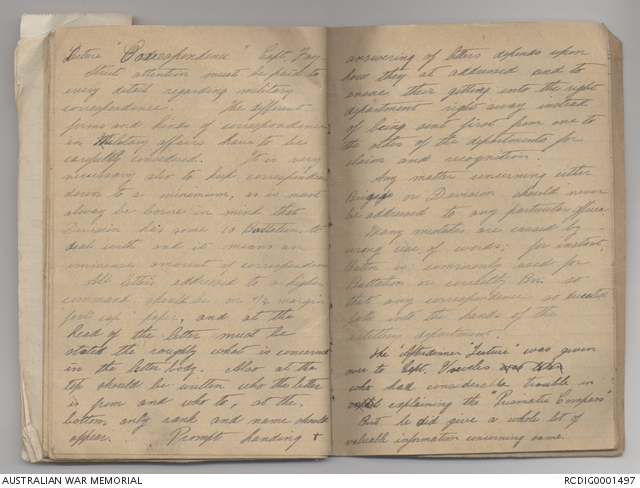 Lecture "Correspondence" Capt. Fay.
Strict attention must be paid to
every detail regarding military
correspondence. The different
forms and kinds of correspondence
in Military affairs have to be
carefully considered. It is very
necessary also to keep correspondence
down to a minimum, as it must
always be borne in mind that
Division has some 10 Battalions to
deal with and it means an
immense amount of correspondence
All letters addressed to a higher
command should be on 1/2 margin
fools cap paper, and at the
head of the letter must be
stated the roughly what is concerned
in the letter body. Also at the
top should be written who the letter
is from and who to, at the
bottom only rank and name should
appear. Prompt handing &
answering of letters depends upon
how they at addressed and to
ensue their getting into the right
department right away instead
of being sent first from one to
the other of the departments for
claim and recognition.
Any matter concerning either
Brigage or Division should never
be addressed to any particular officer.
Many mistakes are caused by
wrong use of words, for instant
Baton is commonly used for
Battalion or correctly Bn. so
that any correspondence so
falls into the hands of the
department.
The "Afterdinner" "Lecture" was given
over to Capt.
who had considerable trouble in
explaining the "Prismatic Compass"
But he did give a whole lot of
valuable information concerning same.
AUSTRALIAN WAR MEMORIAL
RCDIG0001497